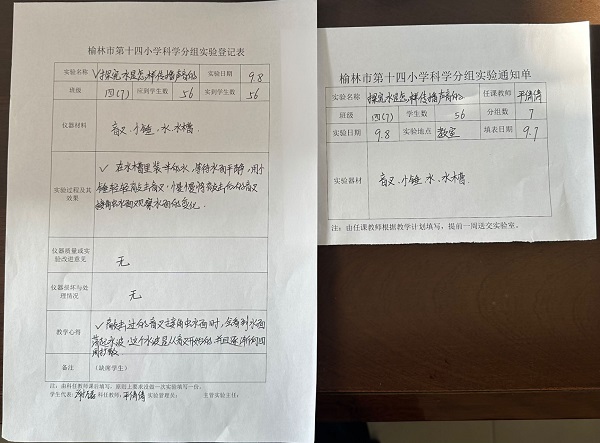 榆林市第十四小学科学分组实验登记表
实验名称 探究水是怎样传播声音的 实验日期 9.8
班级 四(7) 应到学生数 56 实到学生数 56
仪器材料 音叉、小锤、水、水槽.
实验过程及其效果 在水槽里装一半的水,等待水面平静,用小锤轻轻敲击音叉,慢慢将敲击后的音叉接触水面观察水面的变化.
仪器质量或实验改进意见 无
仪器损坏与处理情况 无
教学心得 敲击过的音叉接触水面时,会看到水面荡起水波,这个水波是从音叉开始的,并且逐渐向四周扩散
备注 (缺席学生)
注:由科任教师课后填写,原则上要求没做一次实验填写一份;
学生代表: 科任教师:平倩倩 实验管理员: 主管实验主任:
榆林市第十四小学科学分组实验通知单
实验名称 探究水是怎样传播声音的 任课教师 平倩倩
班级 四(7) 学生数 56 分组数 7
实验日期 9.8 实验地点 教室 填表日期 9.7
实验器材 音叉、小锤、水、水槽.
注:由任课教师根据教学计划填写,提前一周送交实验室。